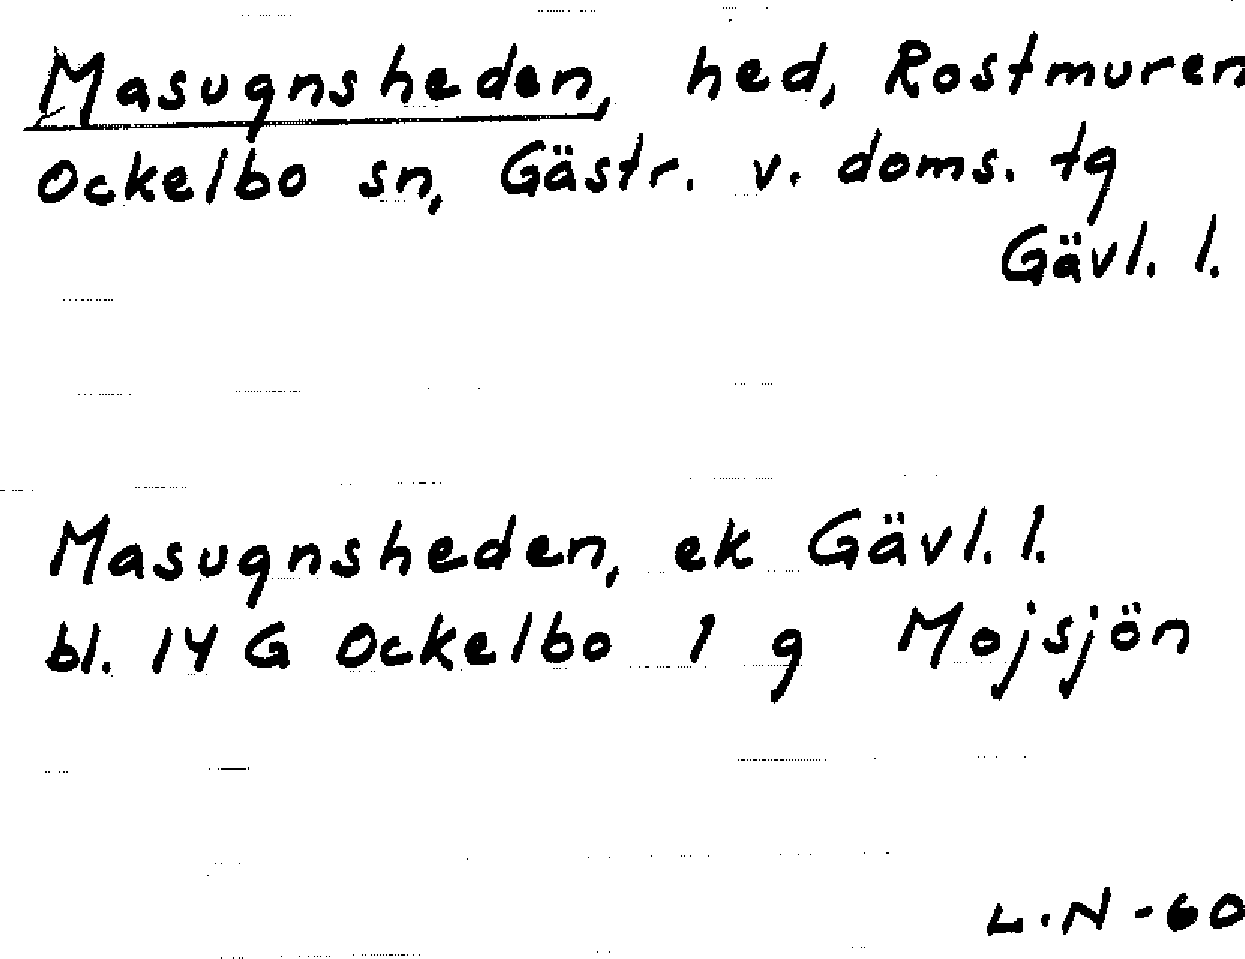 Masugnsheden, hed, Rostmuren
Ockelbo sn, Gästr. v. doms. tg
Gävl. l.
Masugnsheden, ek Gävl. l.
bl. 14 G Ockelbo 1 g Mojsjön
L.N -60